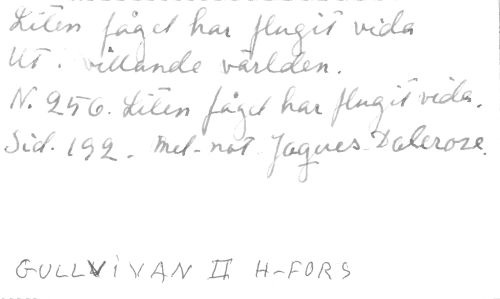 Liten fågel har flugit vida
Ut i villande världen.
N. 256. Liten fågel har flugit vida.
Sid. 192. Mel-not. Jaques-Dalcroze.
GULLVIVAN II H-FORS